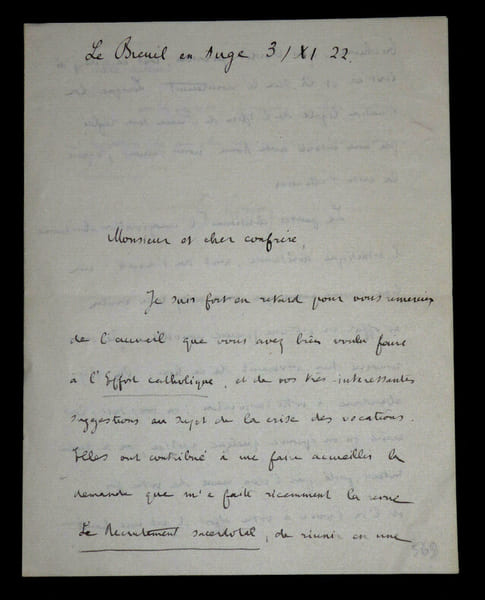 Le Breuil en Auge 3/XI 22.
Monsieur et cher confrère,
Je suis fort en retard pour vous remercier
de l'accueil que vous avez bien voulu faire
à l'Effort catholique, et de vos très intéressantes
suggestions au sujet de la crise des vocations.
Elles ont contribué à me faire accueillir la
demande que m'a faite récemment la revue
Le Recrutement sacerdotal, de réunir en une
569